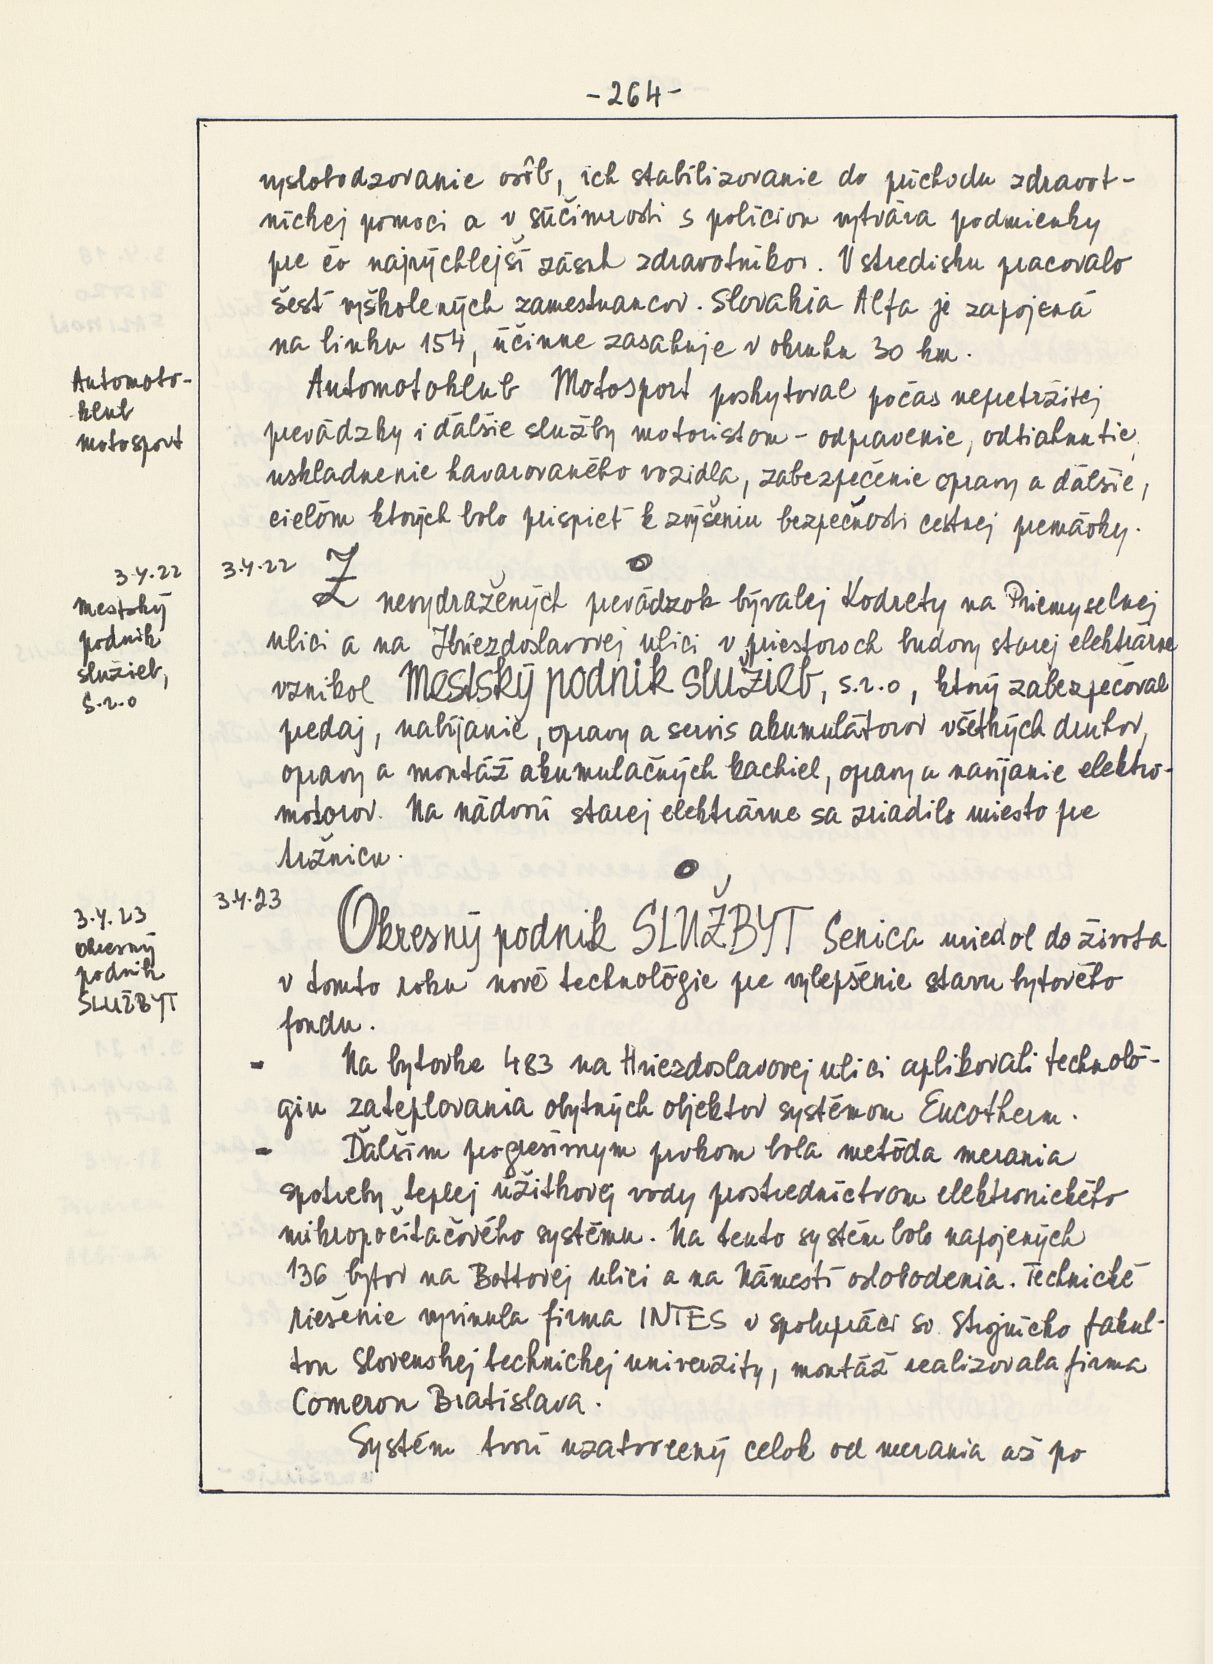 -264-
vyslobodzovanie osôb, ich stabilizovanie do príchodu zdravot-
níckej pomoci a v súčinnosti s políciou vytvára podmienky
pre čo najrýchlejší zásah zdravotníkov. V stredisku pracovalo
šesť vyškolených zamestnancov. Slovakia Alfa je zapojená
na linku 154, účinne zasahuje v okruhu 30 km.
Automoto-
klub
motosport
Automotoklub Motosport poskytoval počas nepretržitej
prevádzky i ďalšie služby motoristom - odpravenie, odtiahnutie,
uskladnenie havarovaného vozidla, zabezpečenie opravy a ďalšie,
cieľom ktorých bolo prispieť k zvýšeniu bezpečnosti cestnej premávky.
3.4.22
Mestský
podnik
služieb,
s.r.o
3.4.22
Z nevydražených prevádzok bývalej Kodrety na Priemyselnej
ulici a na Hviezdoslavovej ulici v priestoroch budovy starej elektrárne
vznikol Mestský podnik služieb, s.r.o, ktorý zabezpečoval
predaj, nabíjanie, opravy a servis akumulátorov všetkých druhov,
opravy a montáž akumulačných kachieľ, opravy a navíjanie elektro-
motorov. Na nádvorí starej elektrárne sa zriadilo miesto pre
tržnicu.
3.4.23
Okresný
podnik
SLUŽBYT
3.4.23
Okresný podnik SLUŽBYT Senica uviedol do života
v tomto roku nové technológie pre vylepšenie stavu bytového
fondu.
- Na bytovke 483 na Hviezdoslavovej ulici aplikovali technoló-
giu zatepľovania obytných objektov systémom Eucotherm.
- Ďalším progresívnym prvkom bola metóda merania
spotreby teplej úžitkovej vody prostredníctvom elektronického
mikropočítačového systému. Na tento systém bolo napojených
136 bytov na Bottovej ulici a na Námestí oslobodenia. Technické
riešenie vyvinula firma INTES v spolupráci so Strojnícko fakul-
tou Slovenskej technickej univerzity, montáž realizovala firma
Comeron Bratislava.
Systém tvorí uzatvorený celok od merania až po